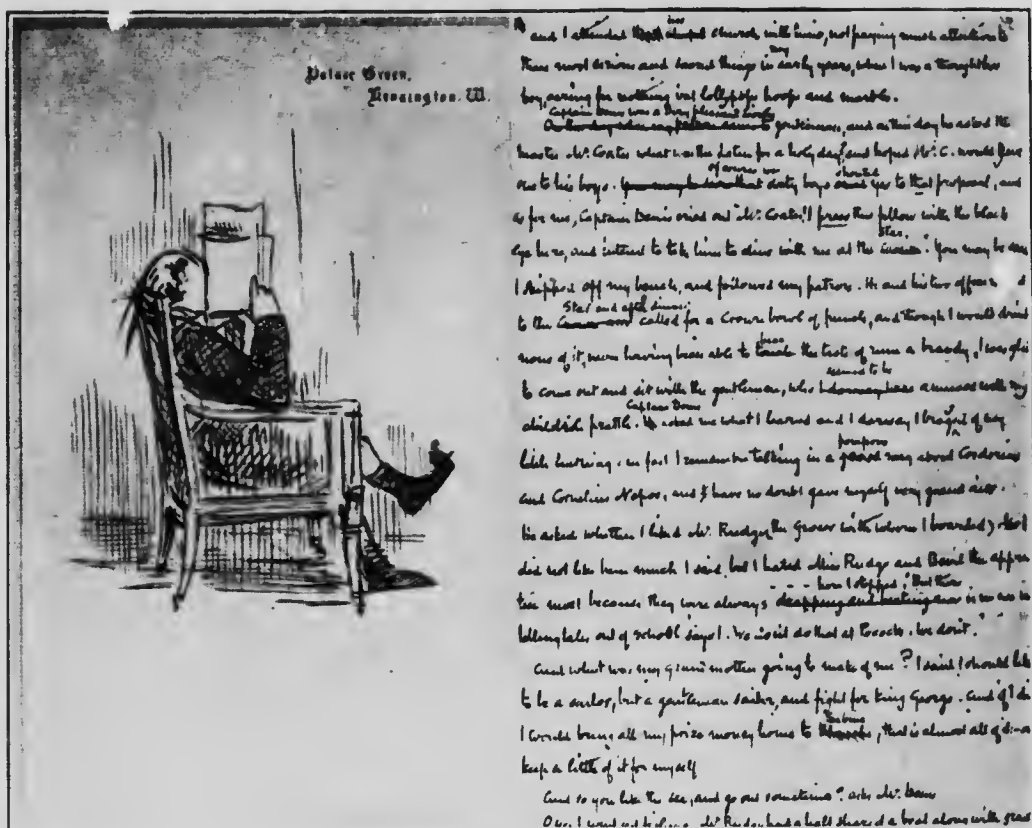 Palace Green,
Kensington. W.
and I attended church with him, not paying much attention to
those most serious and sacred things in my early years, when I was a thoughtless
boy, caring for nothing but lollypops hoops and marbles.
Captain Denis was a very pleasant lively
gentleman, and on this day he asked the
master Mr. Coates what was the Latin for a holyday, and hoped Mr. C. would give
one to his boys. of course we sixty boys shouted yes to that proposal, and
as for me, Captain Denis cried out "Mr. Coates, I press this fellow with the black
eye here, and intend to take him to dine with me at the Star." You may be sure
I skipped off my bench, and followed my patron. He and his two officers
Star and after dinner
to the called for a Crown bowl of punch, and though I would drink
none of it, never having been able to bear the taste of rum or brandy, I was glad
to come out and sit with the gentlemen, who seemed to be amused with my
childish prattle. Captain Denis asked me what I learned and I daresay I bragged of my
little learning: in fact I remember talking in a pompous way about Corderius
and Cornelius Nepos, and I have no doubt gave myself very grand airs.
He asked whether I liked Mr. Rudge, the Grocer with whom I boarded?
did not like him much I said, but I hated Miss Rudge and Bevil the appren
tice most because they were always - - - here I stopped, But there is no use in
telling tales out of school says I. We don't do that at
And what was my grandmother going to make of me? I said I should like
to be a sailor, but a gentleman sailor, and fight for King George. And if I did
I would bring all my prize money home to , that is almost all of it
keep a little of it for myself
And so you like the sea, and go out sometimes? asks Mr. Denis
O yes, I went out fishing. Mr. Rudge had a half share of a boat along with